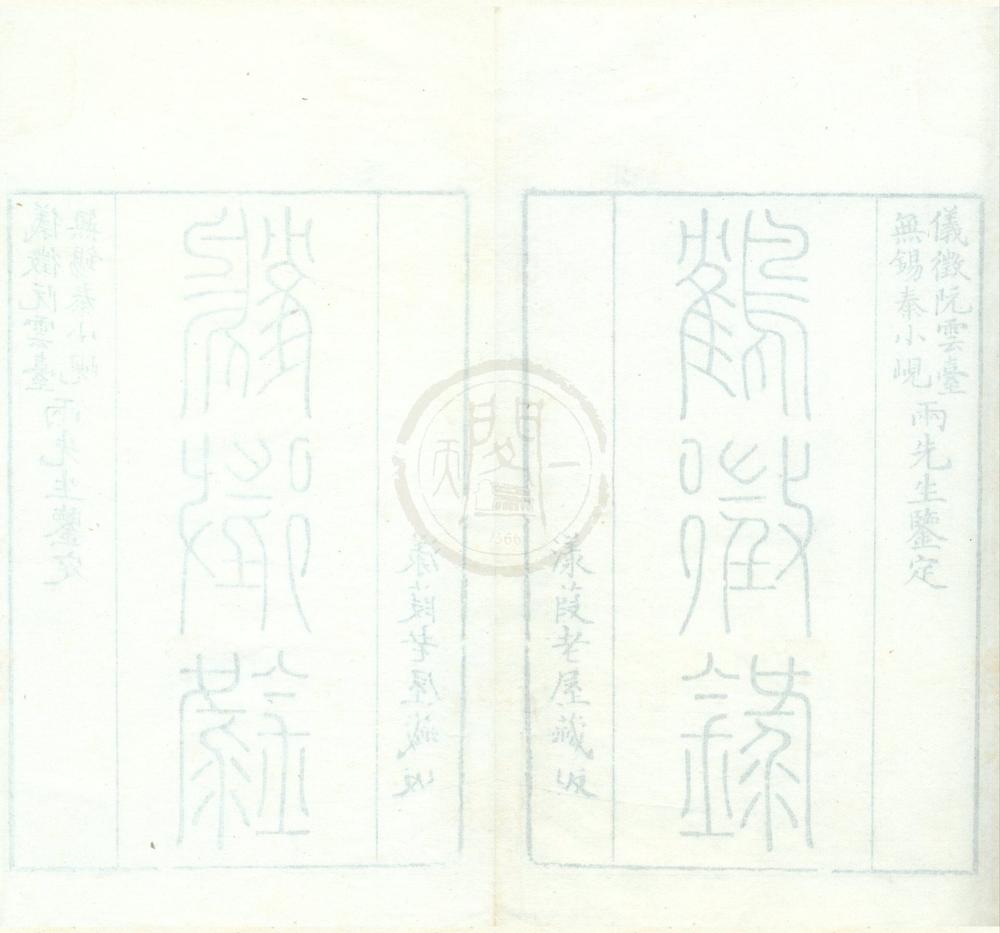 儀徵阮雲臺
無錫秦小峴
兩先生鑒定
鶴徵錄
漾葭老屋藏版
天一閣
1566